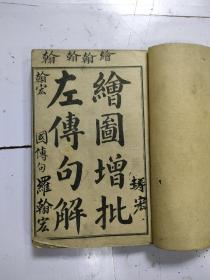 繪翰翰翰
繪圖增批
左傳句解
翰宏
國傳句
羅翰宏